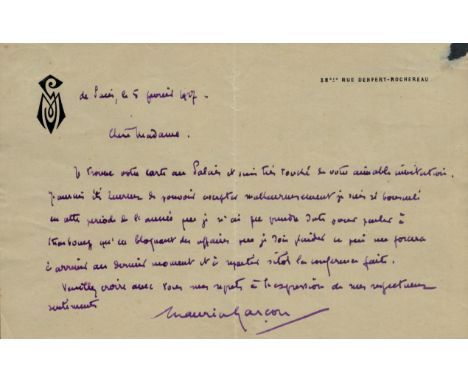 38BIS RUE DENFERT-ROCHEREAU
de Paris, le 5 février 1927.
Chère Madame.
Je trouve votre carte au Palais et suis très touché de votre aimable invitation.
J'aurais été heureux de pouvoir accepter malheureusement je suis si bousculé
en cette période de l'année que je n'ai pu prendre date pour parler à
Strasbourg qu'en bloquant des affaires que je dois plaider ce qui me forcera
à arriver au dernier moment et à repartir sitôt la conférence faite.
Veuillez croire avec tous mes regrets à l'expression de mes respectueux
sentiments
Maurice Garçon